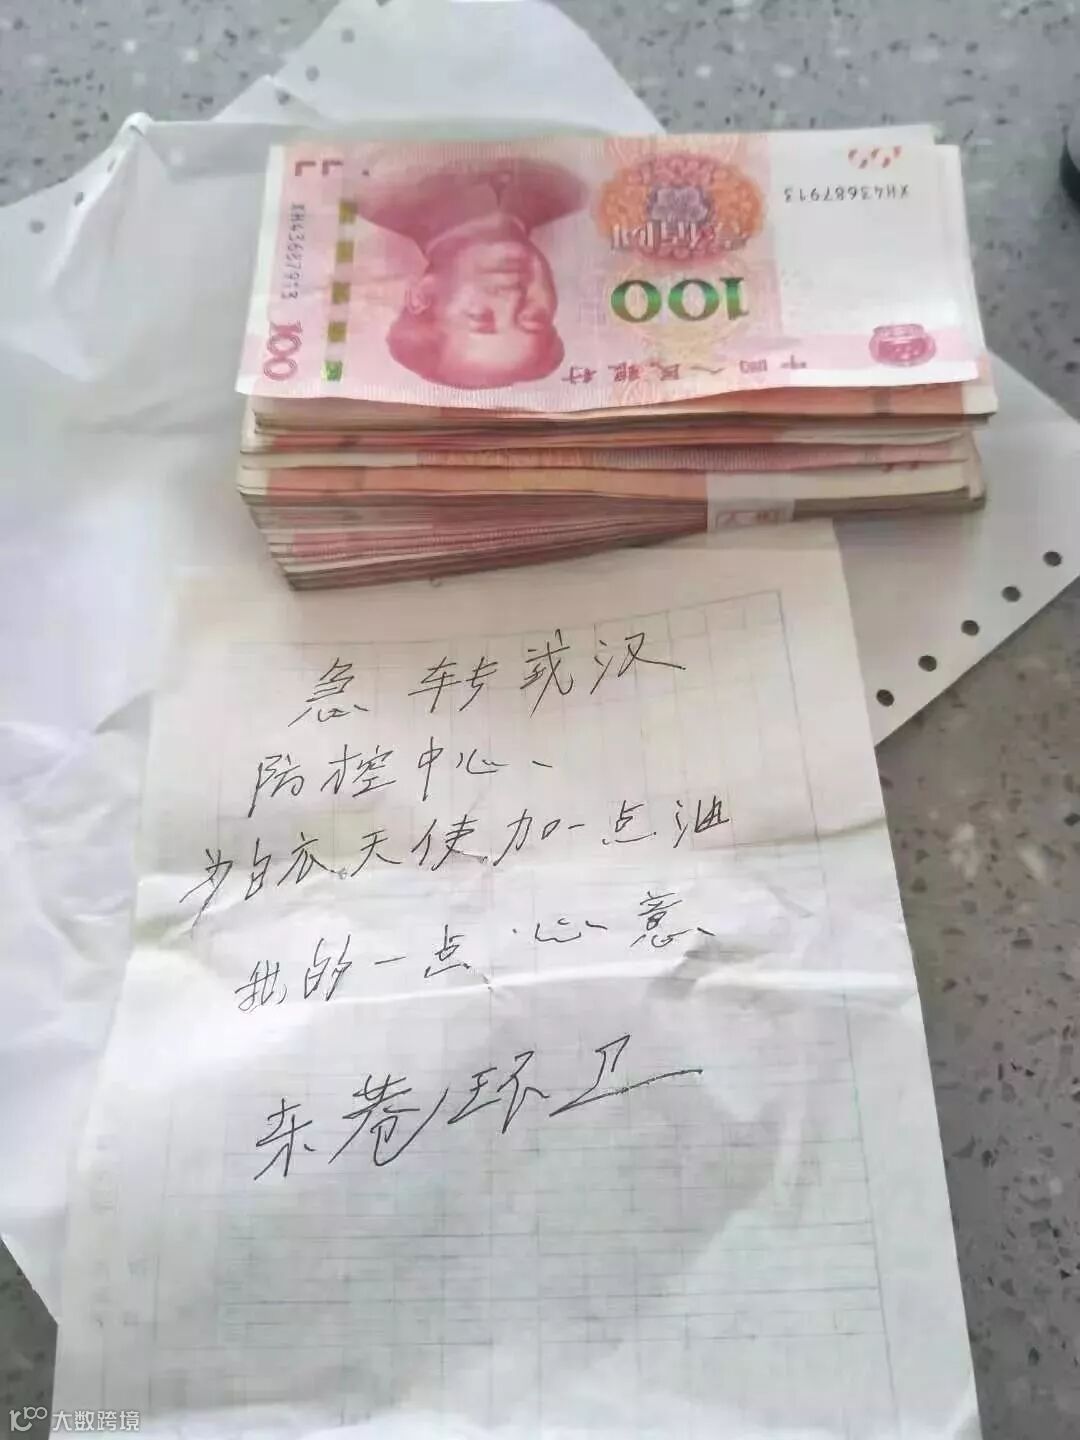 XH43687913
XH43687913
100
100
中国人民银行
壹佰圆
急 转武汉
防控中心、
为白衣天使加一点油
我的一点心意、
东巷环卫
大数跨境